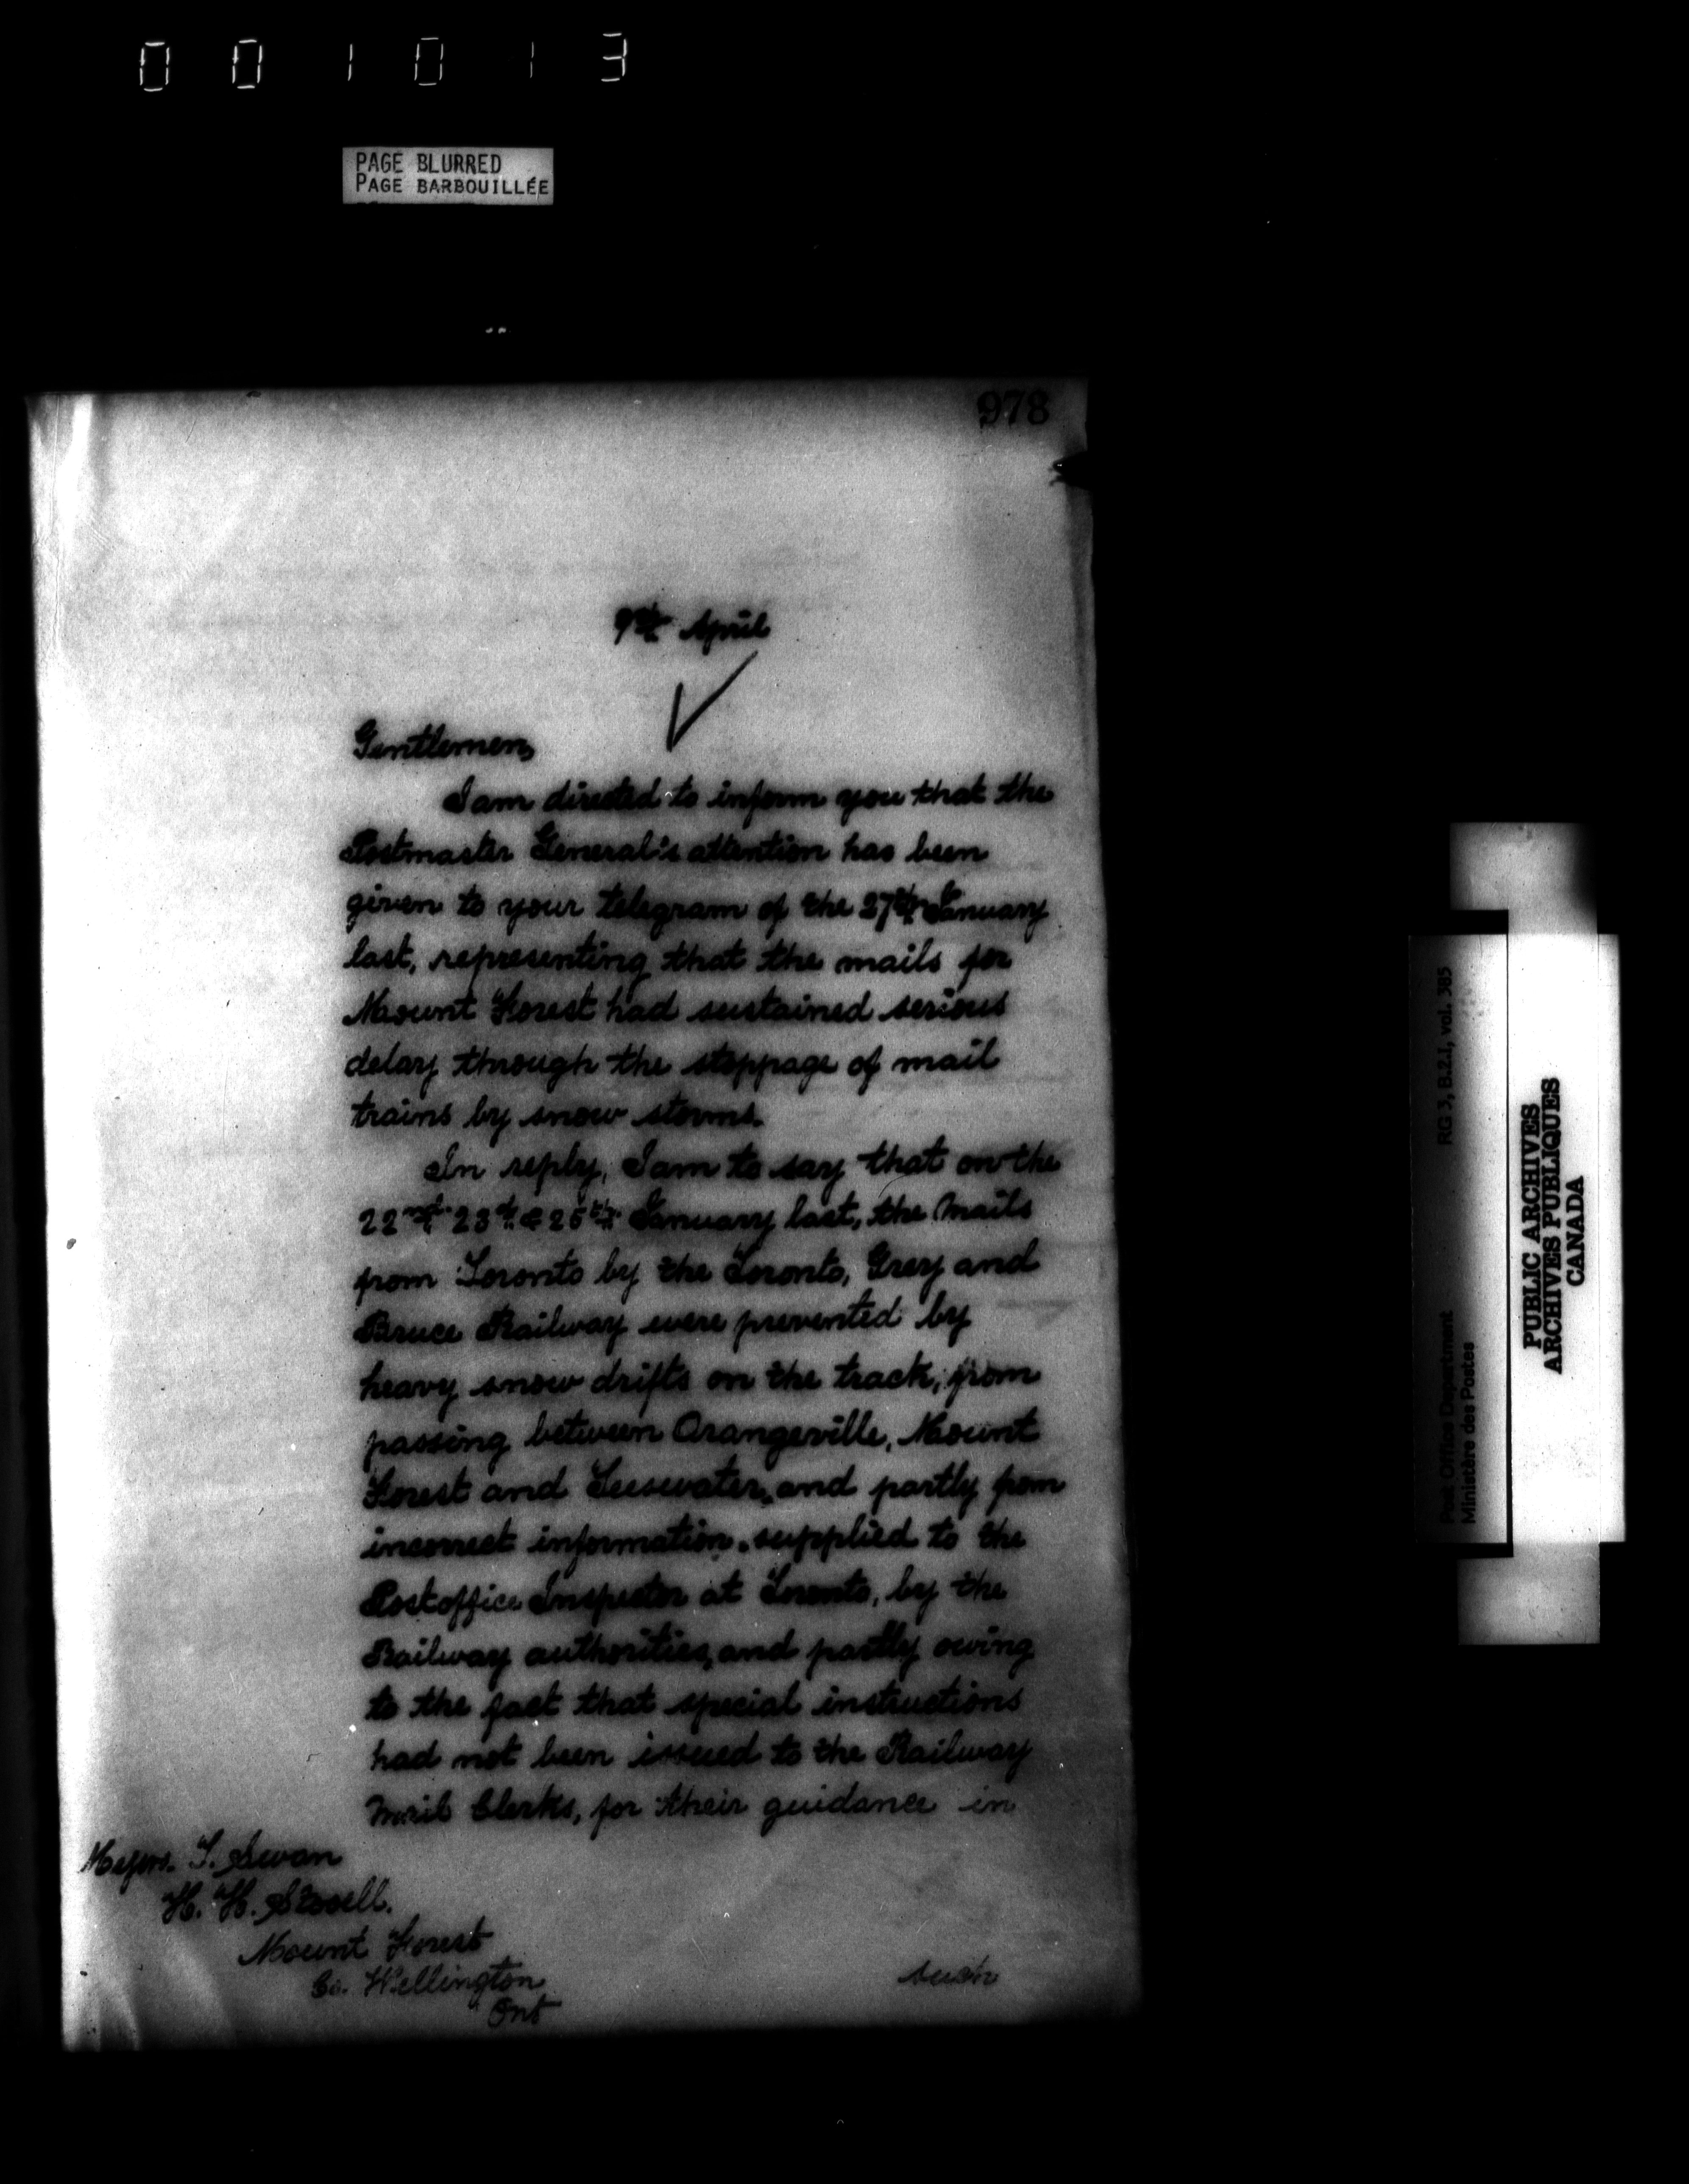 001013
PAGE BLURRED
PAGE BARBOUILLÉE
978
9th April
Gentlemen,
I am directed to inform you that the
Postmaster General's attention has been
given to your telegram of the 27th January
last, representing that the mails for
Mount Forest had sustained serious
delay through the stoppage of mail
trains by snow storms.
In reply, I am to say that on the
22nd 23d & 25th January last, the Mails
from Toronto by the Toronto, Grey and
Bruce Railway were prevented by
heavy snow drifts on the track, from
passing between Orangeville, Mount
Forest and Teeswater, and partly from
incorrect information supplied to the
Postoffice Inspector at Toronto, by the
Railway authorities, and partly owing
to the fact that special instructions
had not been issued to the Railway
Mail Clerks, for their guidance in
Messrs. T. Swan
H. H. Stovell.
Mount Forest
Co. Wellington
Ont
such
RG 3, B.2.1, vol. 385
Post Office Department
Ministère des Postes
PUBLIC ARCHIVES
ARCHIVES PUBLIQUES
CANADA